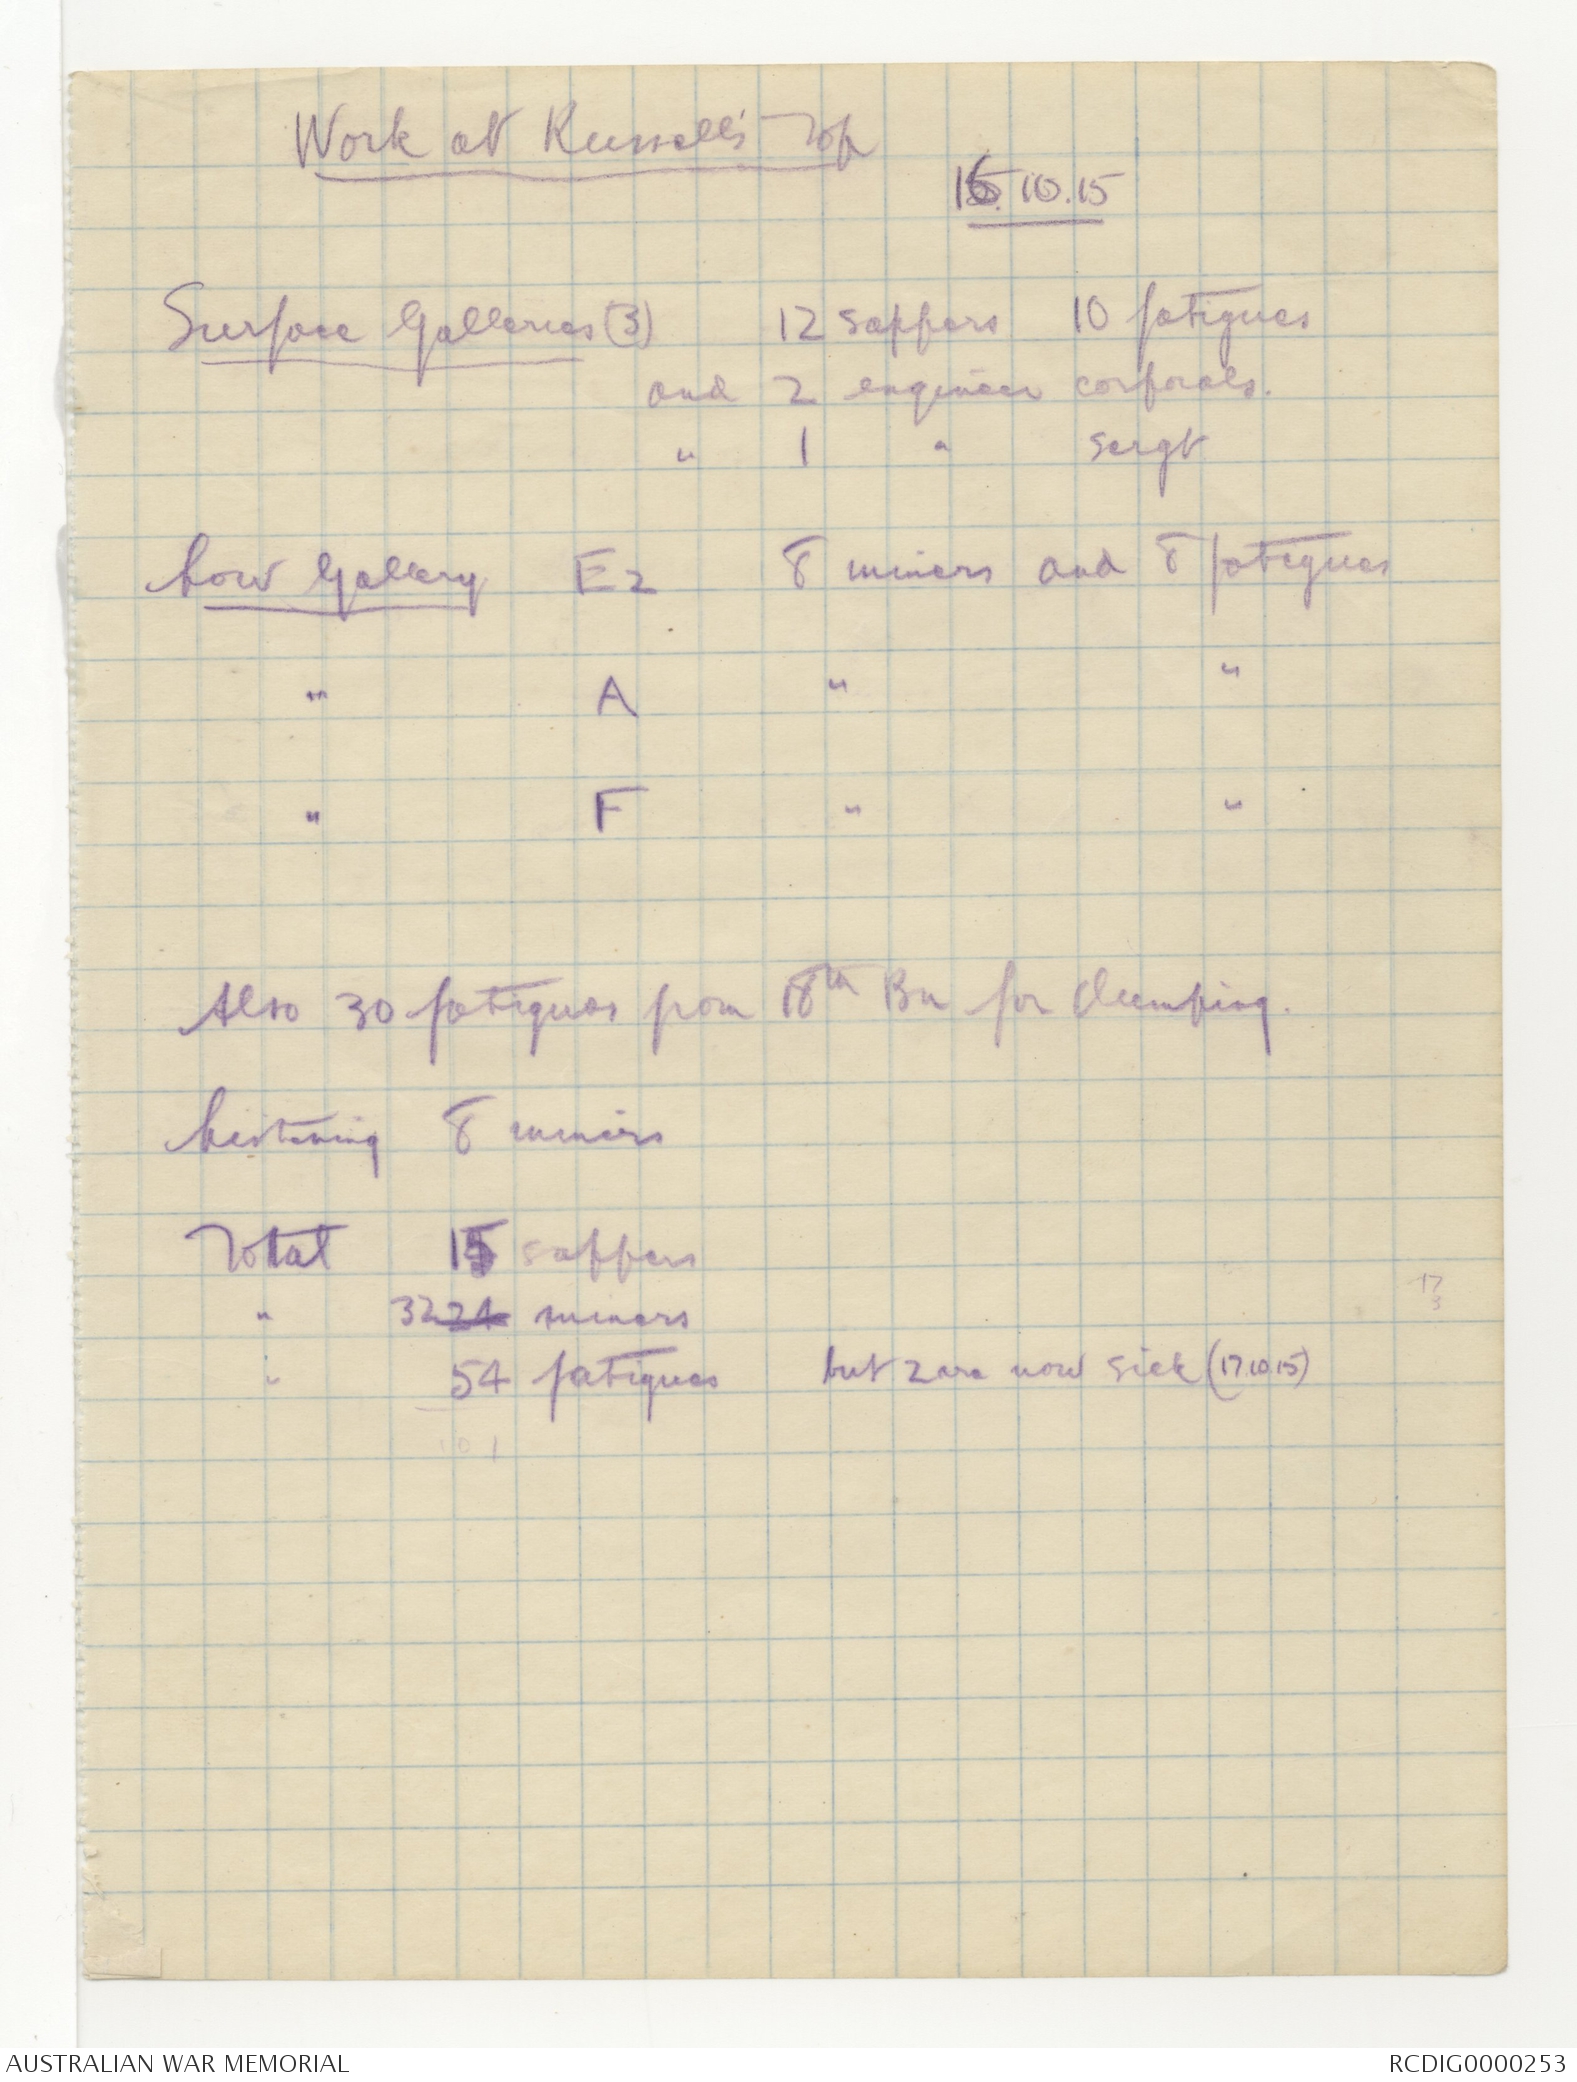 Work at Russell's Top
16.10.15
Surface Galleries (3) 12 sappers 10 fatigues
and 2 engineer corporals.
" 1 " Sergt
Low Gallery E2 8 miners and 8 fatigues
" A " "
" F " "
Also 30 fatigues from 18th Bn for dumping.
Listening 8 miners
Total 15 sappers
" 32 24 miners
" 54 fatigues but 2 are now sick (17.10.15)
101
17
3
AUSTRALIAN WAR MEMORIAL
RCDIG0000253